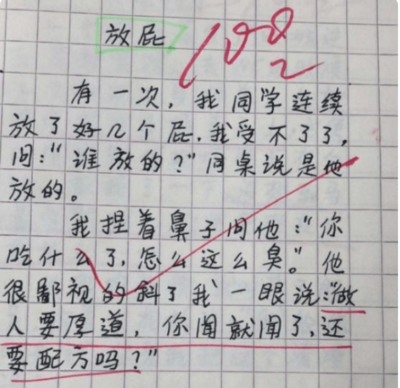 放屁
100
有一次，我同学连续
放了好几个屁，我受不了了，
问："谁放的？"同桌说是他
放的。
我捏着鼻子问他："你
吃什么了，怎么这么臭。"他
很鄙视的斜了我一眼说："做
人要厚道，你闻就闻了，还
要配方吗？"